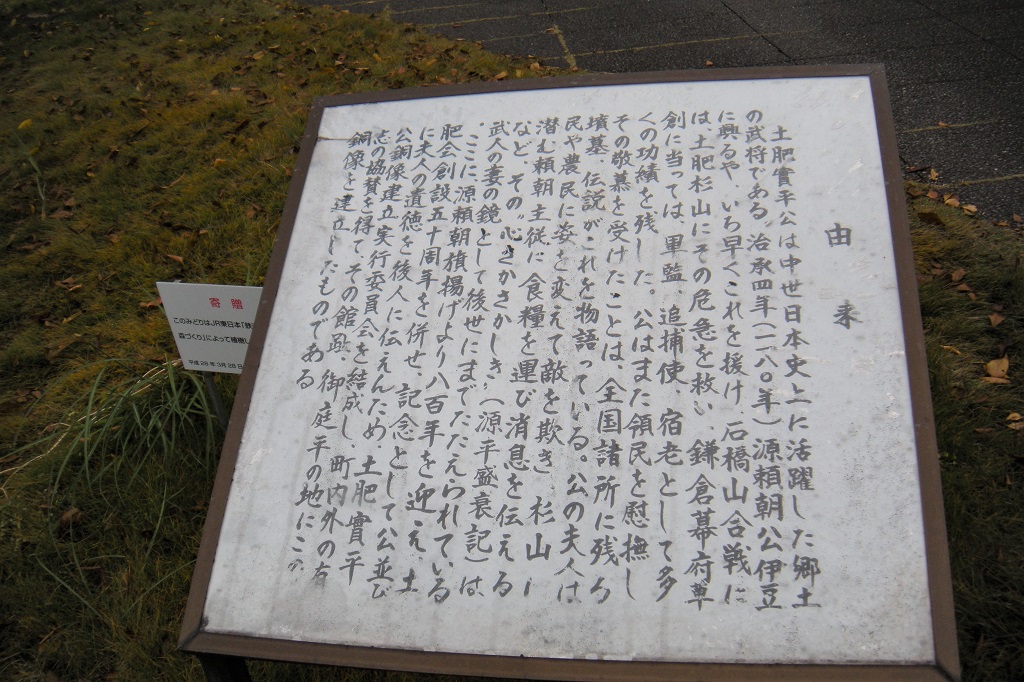 由来
土肥實平公は中世日本史上に活躍した郷土
の武将である。治承四年(一一八〇年)源頼朝公伊豆
に興るや、いち早くこれを援け、石橋山合戦に
は土肥杉山にその危急を救い、鎌倉幕府草
創に当っては、軍監、追捕使、宿老として多
くの功績を残した。公はまた領民を慰撫し
その敬慕を受けたことは、全国諸所に残る
墳墓、伝説がこれを物語っている。公の夫人は
民や農民に姿を変えて敵を欺き、杉山に
潜む頼朝主従に食糧を運び消息を伝える
など、その"心さかさかしき"(源平盛衰記)は
武人の妻の鏡として後世にまでたたえられている
。ここに源頼朝旗揚げより八百年を迎え、土
肥会創設五十周年を併せ、記念として公並び
に夫人の遺徳を後人に伝えんため、土肥實平
公銅像建立実行委員会を結成し、町内外の有
志の協賛を得て、その館趾御庭平の地にこの
銅像を建立したものである
寄贈
このみどりはJR東日本「鉄
森づくり」によって植樹し
平成26年3月28日